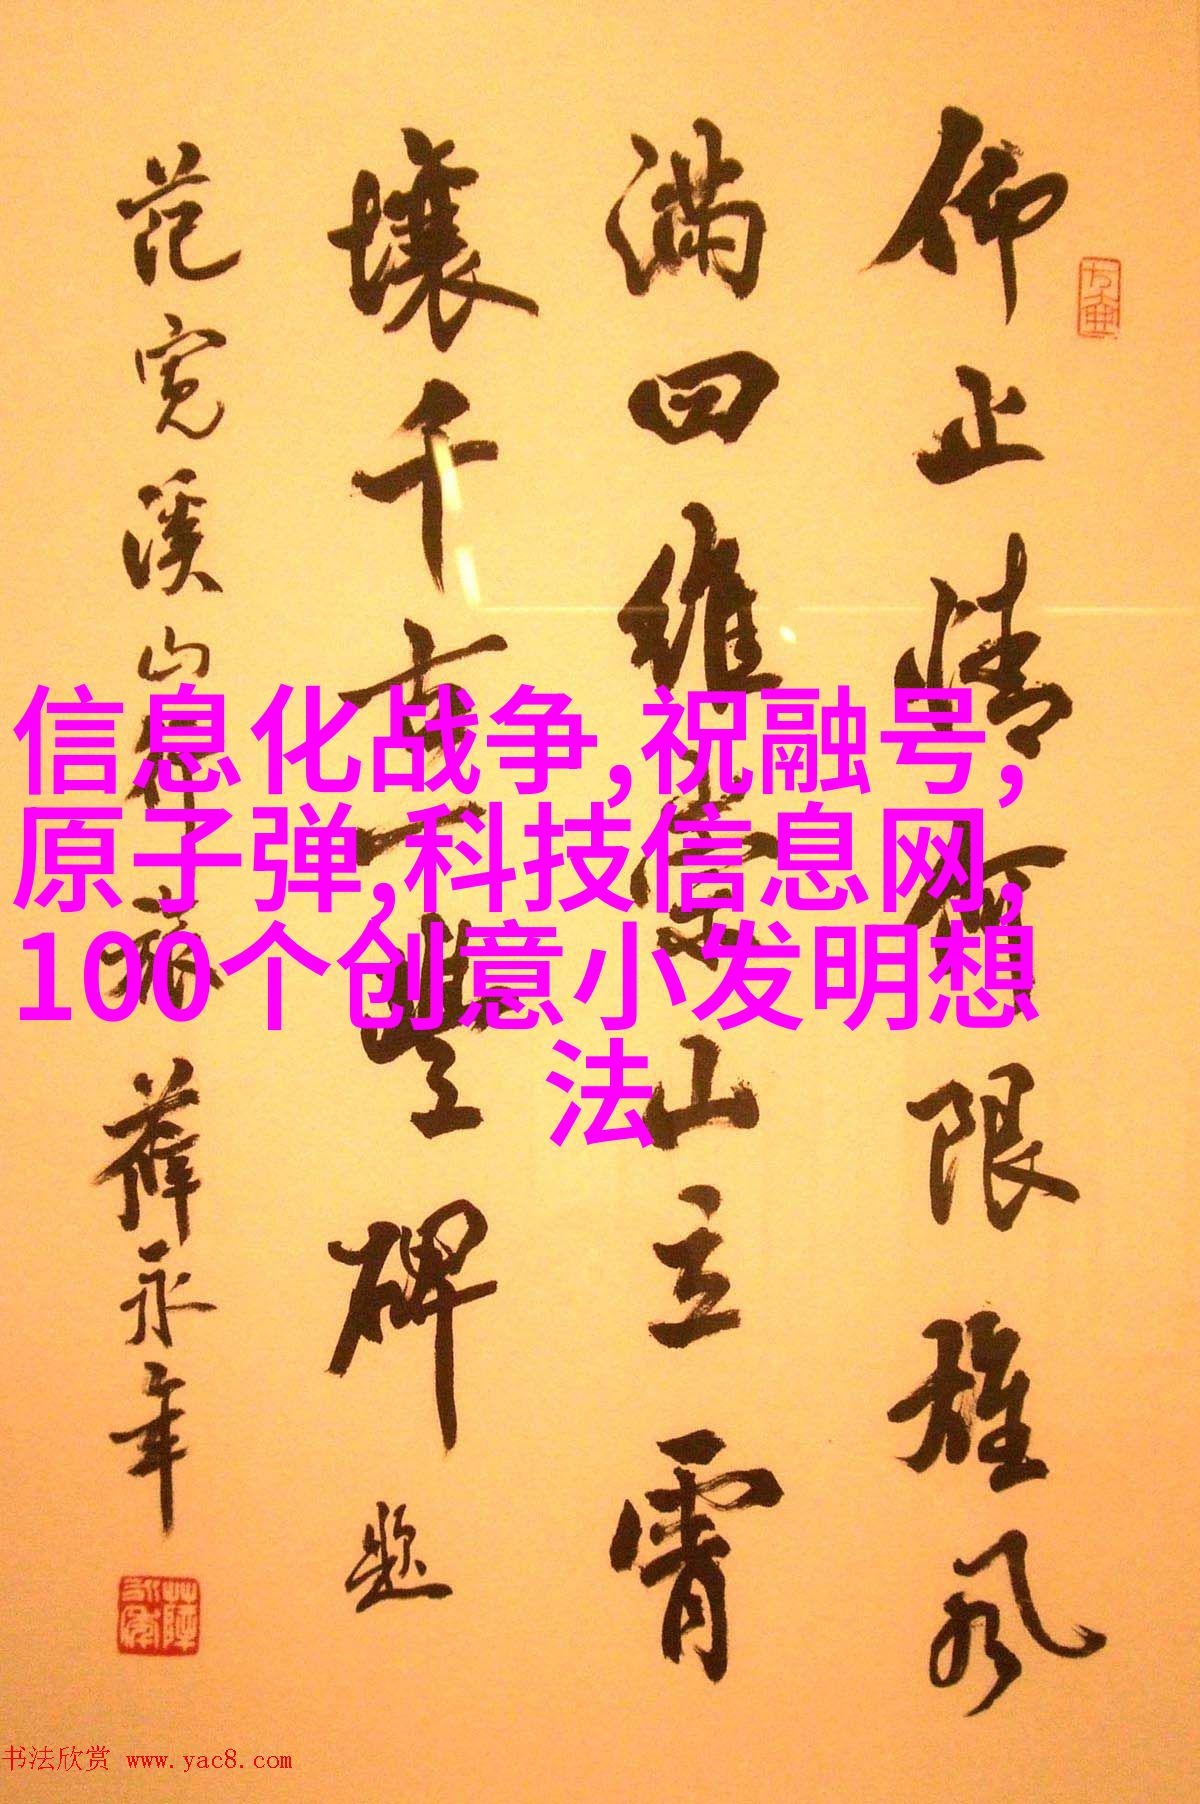 仰止情何限雄风
满四维崇山立霄
壤千古一丰碑题
范宽溪山行旅薛永年
信息化战争,祝融号,
原子弹,科技信息网,
100个创意小发明想
法
书法欣赏 www.yac8.com